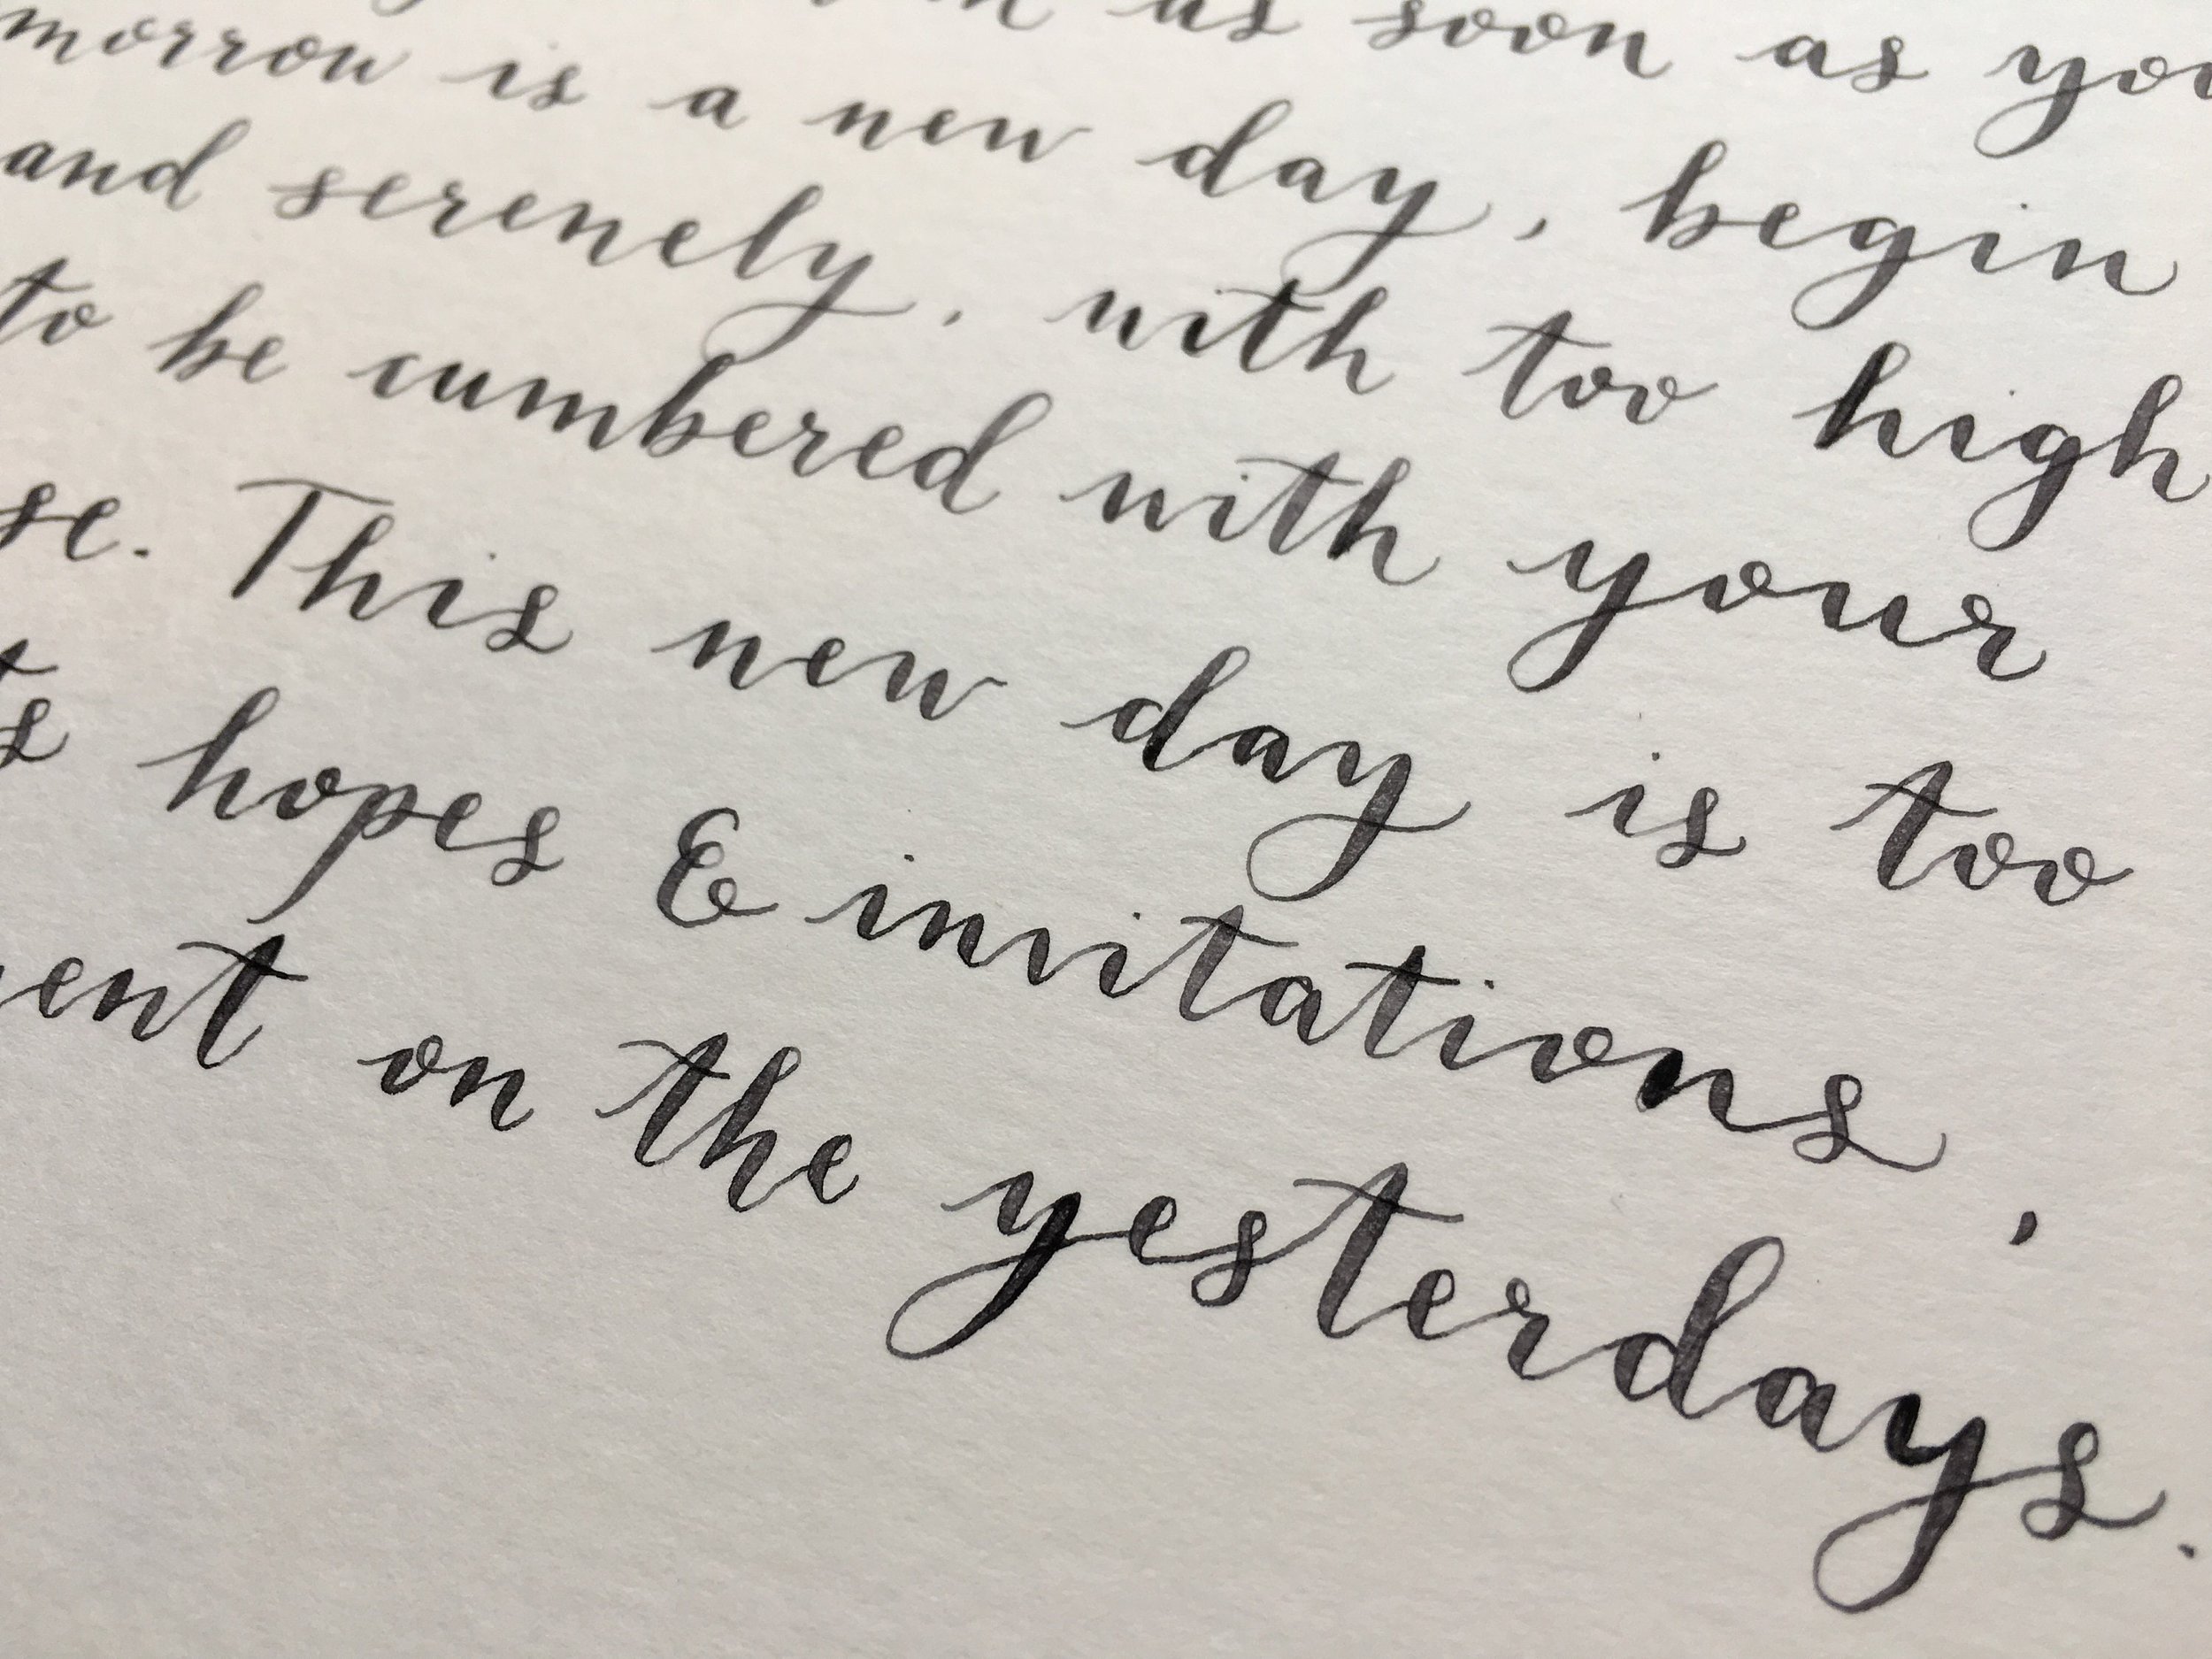 as soon as you
morrow is a new day, begin
and serenely, with too high
to be cumbered with your
se. This new day is too
ts hopes & invitations,
ent on the yesterdays.